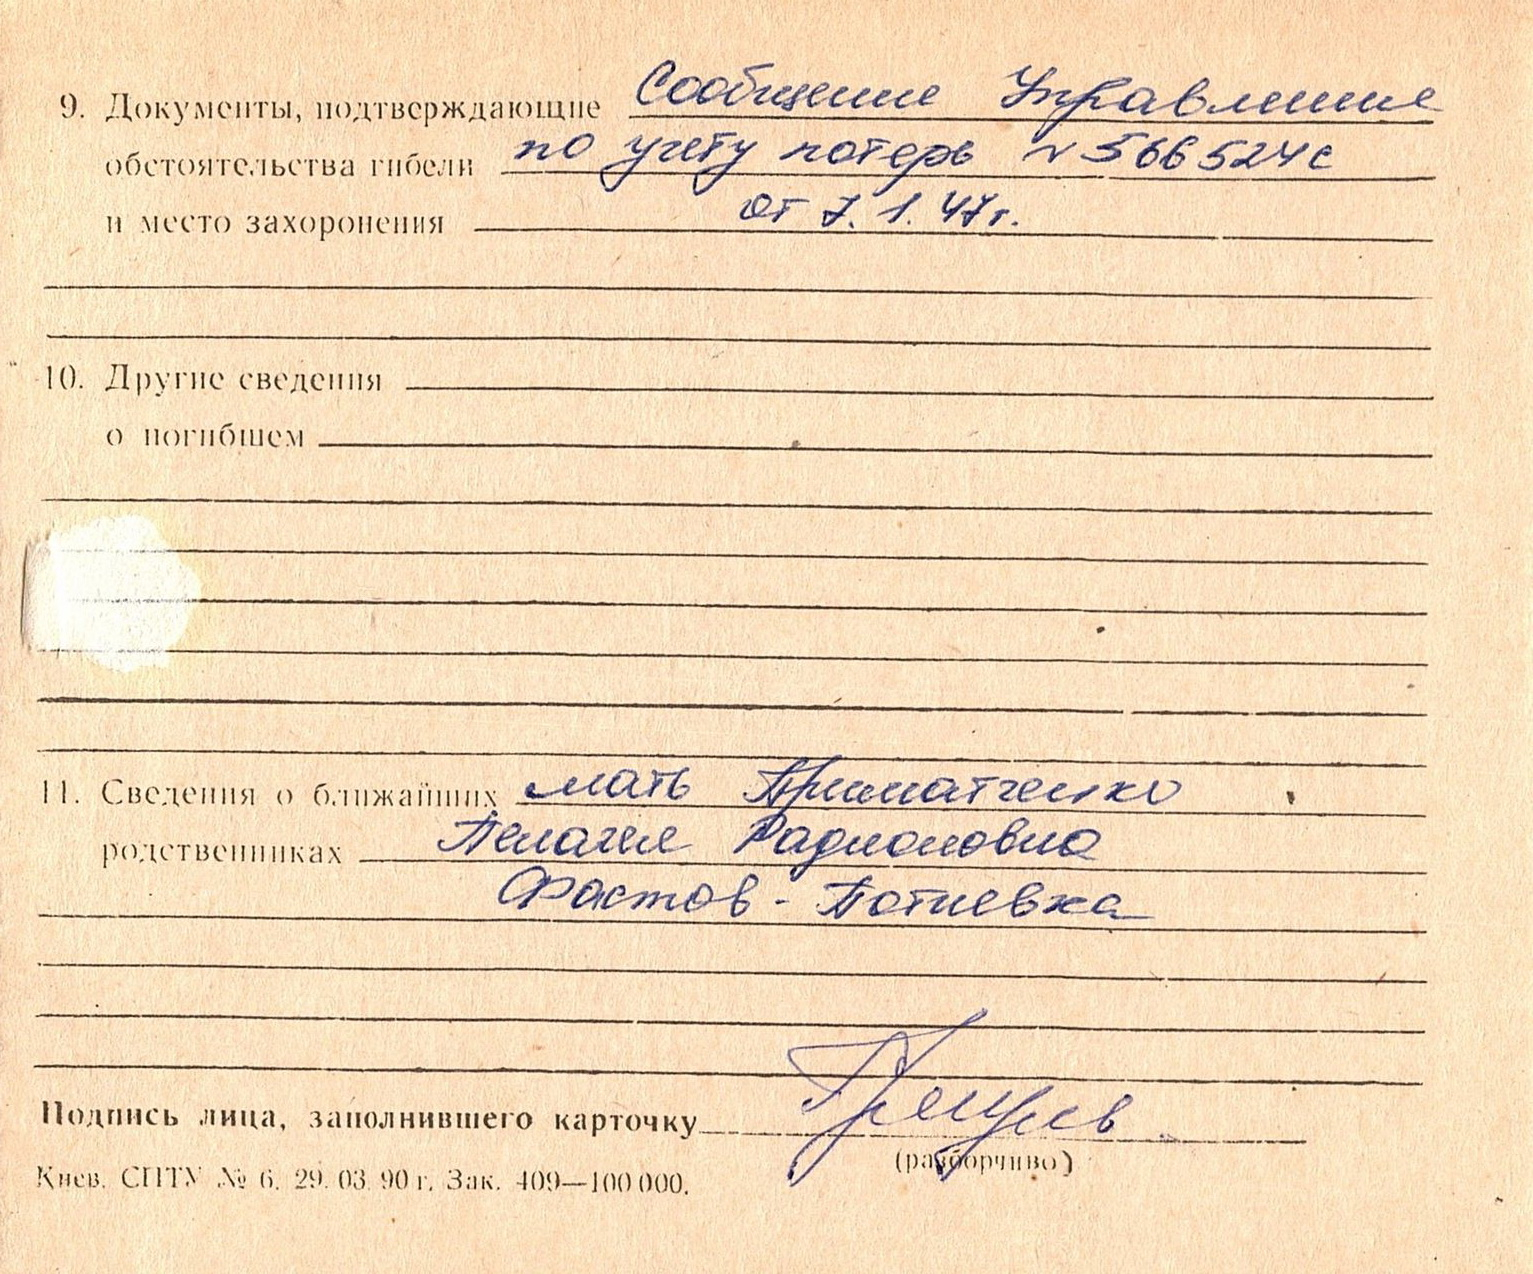 9. Документы, подтверждающие Сообщение Управление
обстоятельства гибели по учету потерь N 566524с
и место захоронения от 7.1.47г.
10. Другие сведения
о погибшем
11. Сведения о ближайших мать
родственниках Пелагея Радионовна
Фастов - Потиевка
Подпись лица, заполнившего карточку
(разборчиво)
Киев. СПТУ № 6. 29. 03. 90 г. Зак. 409—100 000.